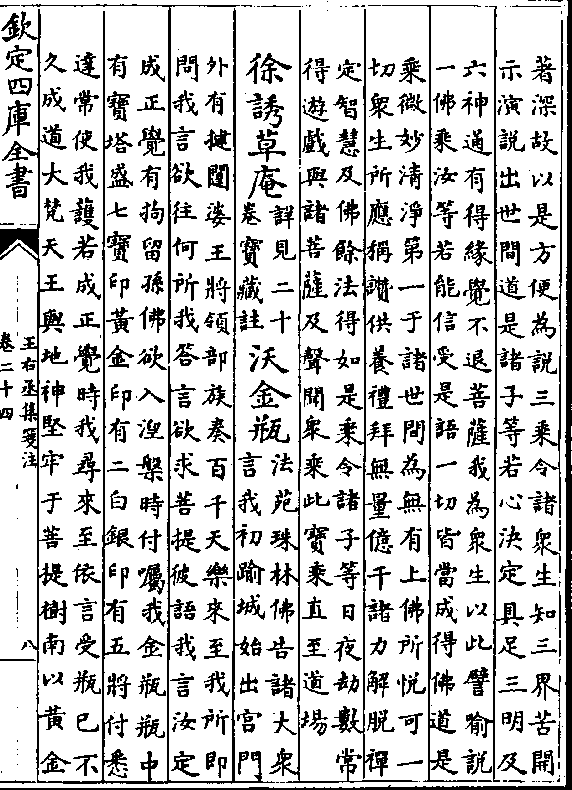 著深故以是方便為說三乘令諸衆生知三界苦開
示演說出世間道是諸子等若心決定具足三明及
六神通有得緣覺不退菩薩我為衆生以此譬喻說
一佛乘汝等若能信受是語一切皆當成得佛道是
乘微妙清淨第一于諸世間為無有上佛所悅可一
切衆生所應稱讚供養禮拜無量億千諸力解脫禪
定智慧及佛餘法得如是乘令諸子等日夜劫數常
得遊戲與諸菩薩及聲聞衆乘此寶乘直至道場
徐誘草庵
詳見二十
卷寶藏註
沃金瓶
法苑珠林佛告諸大衆
言我初踰城始出宮門
外有揵闥婆王將領部族奏百千天樂來至我所即
問我言欲往何所我答言欲求菩提彼語我言汝定
成正覺有拘留孫佛欲入涅槃時付囑我金瓶瓶中
有寶塔盛七寶印黃金印有二白銀印有五將付悉
達常使我護若成正覺時我尋來至依言受瓶已不
久成道大梵天王與地神堅牢于菩提樹南以黃金
欽定四庫全書
王右丞集箋注
卷二十四
八